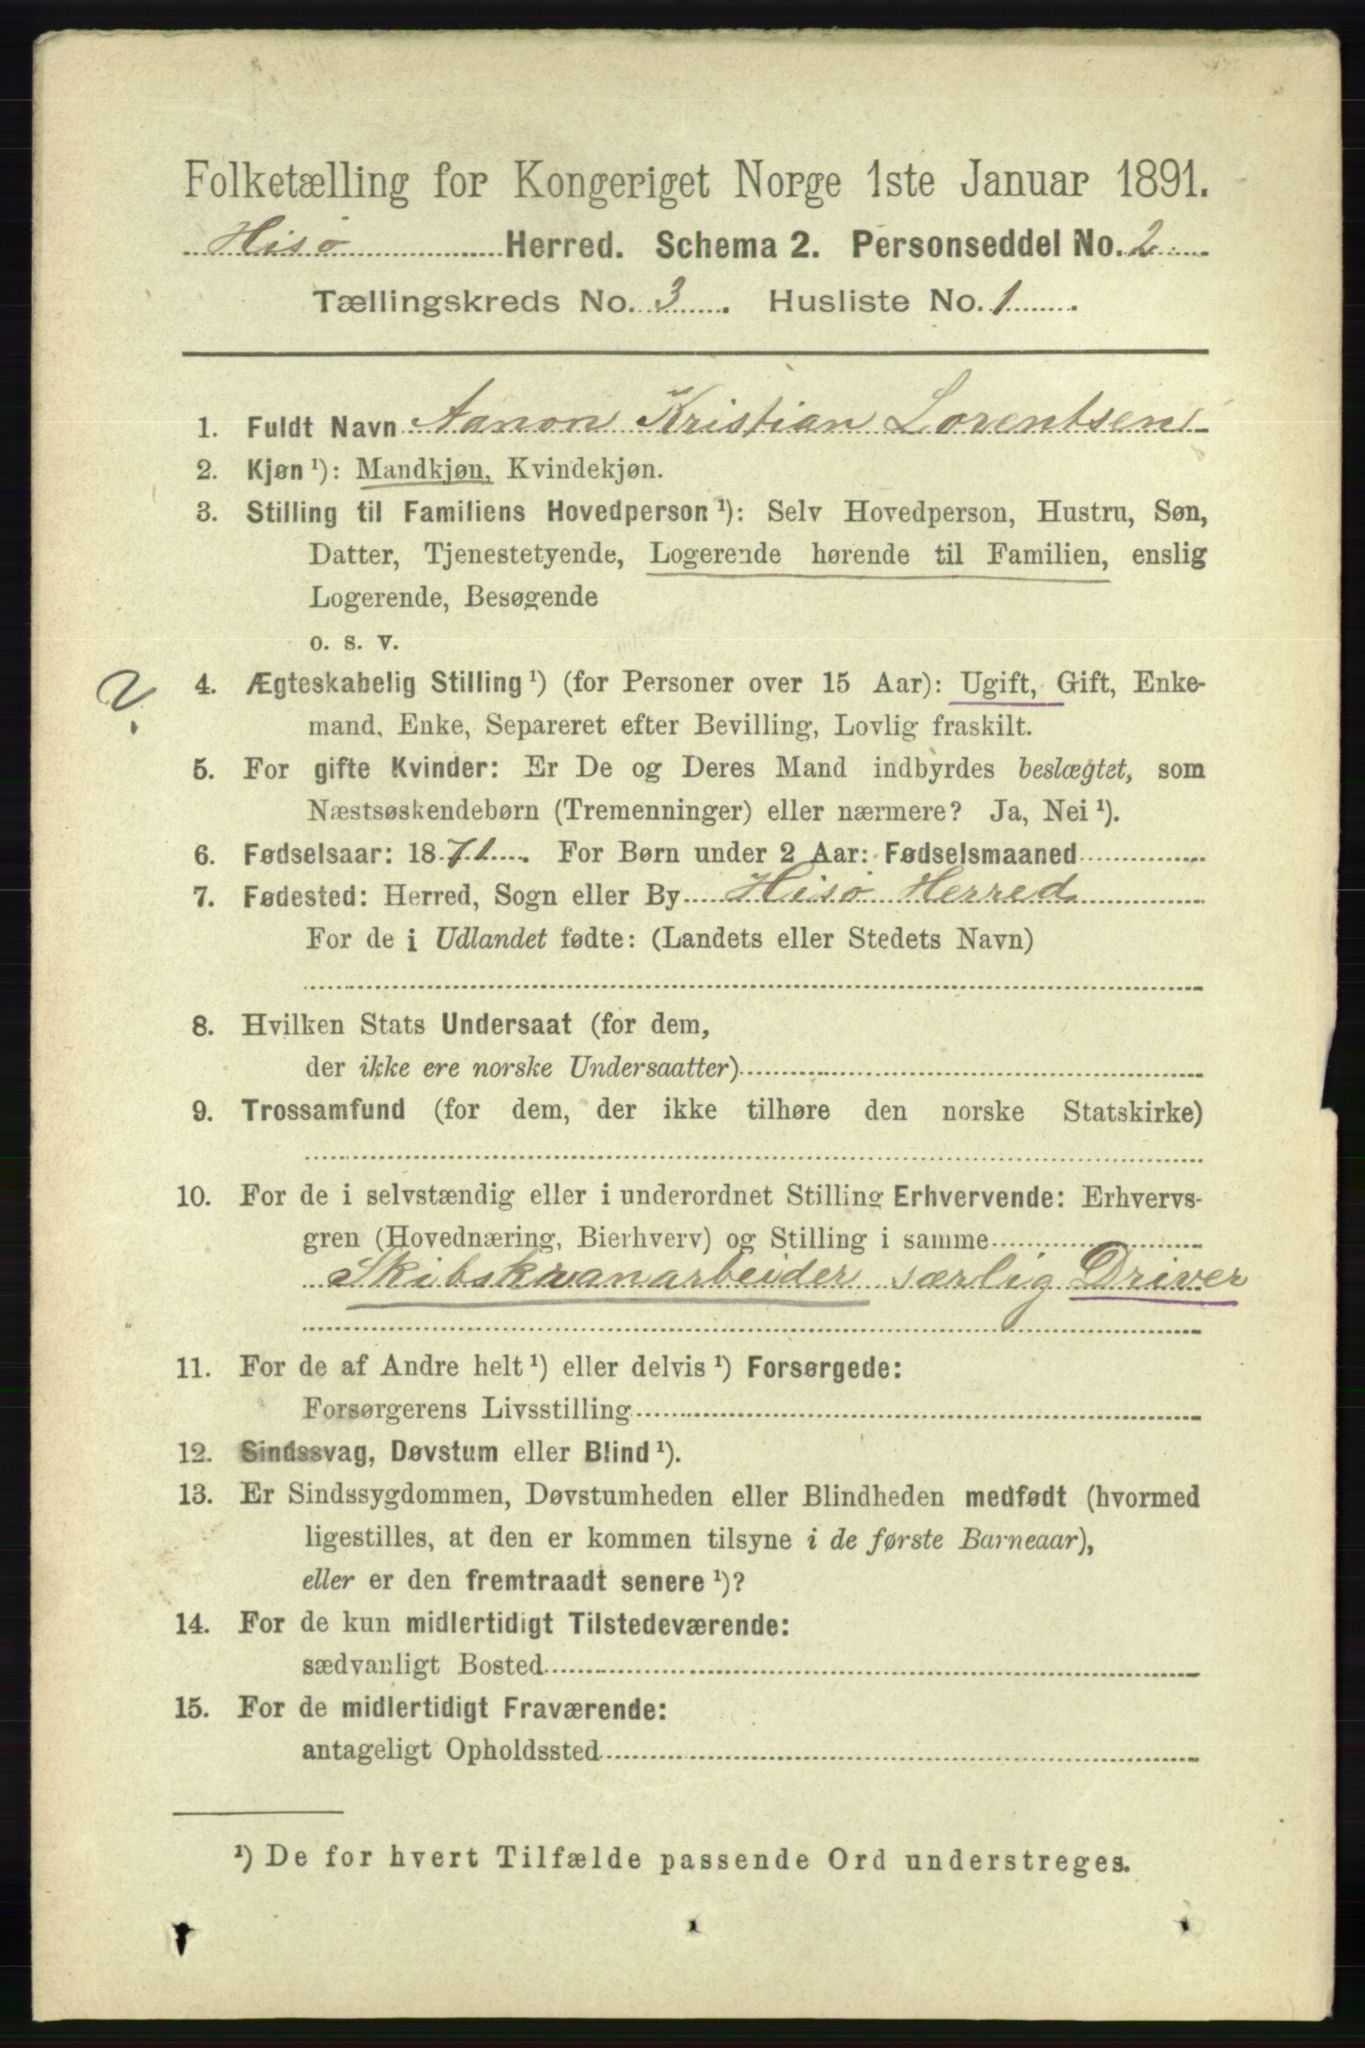 Folketælling for Kongeriget Norge 1ste Januar 1891.
Hisö Herred. Schema 2. Personseddel No. 2
Tællingskreds No. 3. Husliste No. 1.
1. Fuldt Navn Aanon Kristian Lorentsen
2. Kjøn ¹): Mandkjøn, Kvindekjøn.
3. Stilling til Familiens Hovedperson ¹): Selv Hovedperson, Hustru, Søn,
Datter, Tjenestetyende, Logerende hørende til Familien, enslig
Logerende, Besøgende
o. s. v.
?
4. Ægteskabelig Stilling ¹) (for Personer over 15 Aar): Ugift, Gift, Enke-
mand, Enke, Separeret efter Bevilling, Lovlig fraskilt.
5. For gifte Kvinder: Er De og Deres Mand indbyrdes beslægtet, som
Næstsøskendebørn (Tremenninger) eller nærmere? Ja, Nei ¹).
6. Fødselsaar: 1871. For Børn under 2 Aar: Fødselsmaaned
7. Fødested: Herred, Sogn eller By Hisö Herred
For de i Udlandet fødte: (Landets eller Stedets Navn)
8. Hvilken Stats Undersaat (for dem,
der ikke ere norske Undersaatter)
9. Trossamfund (for dem, der ikke tilhøre den norske Statskirke)
10. For de i selvstændig eller i underordnet Stilling Erhvervende: Erhvervs-
gren (Hovednæring, Bierhverv) og Stilling i samme
særlig Driver
11. For de af Andre helt ¹) eller delvis ¹) Forsørgede:
Forsørgerens Livsstilling
12. Sindssvag, Døvstum eller Blind ¹).
13. Er Sindssygdommen, Døvstumheden eller Blindheden medfødt (hvormed
ligestilles, at den er kommen tilsyne i de første Barneaar),
eller er den fremtraadt senere ¹)?
14. For de kun midlertidigt Tilstedeværende:
sædvanligt Bosted
15. For de midlertidigt Fraværende:
antageligt Opholdssted
¹) De for hvert Tilfælde passende Ord understreges.